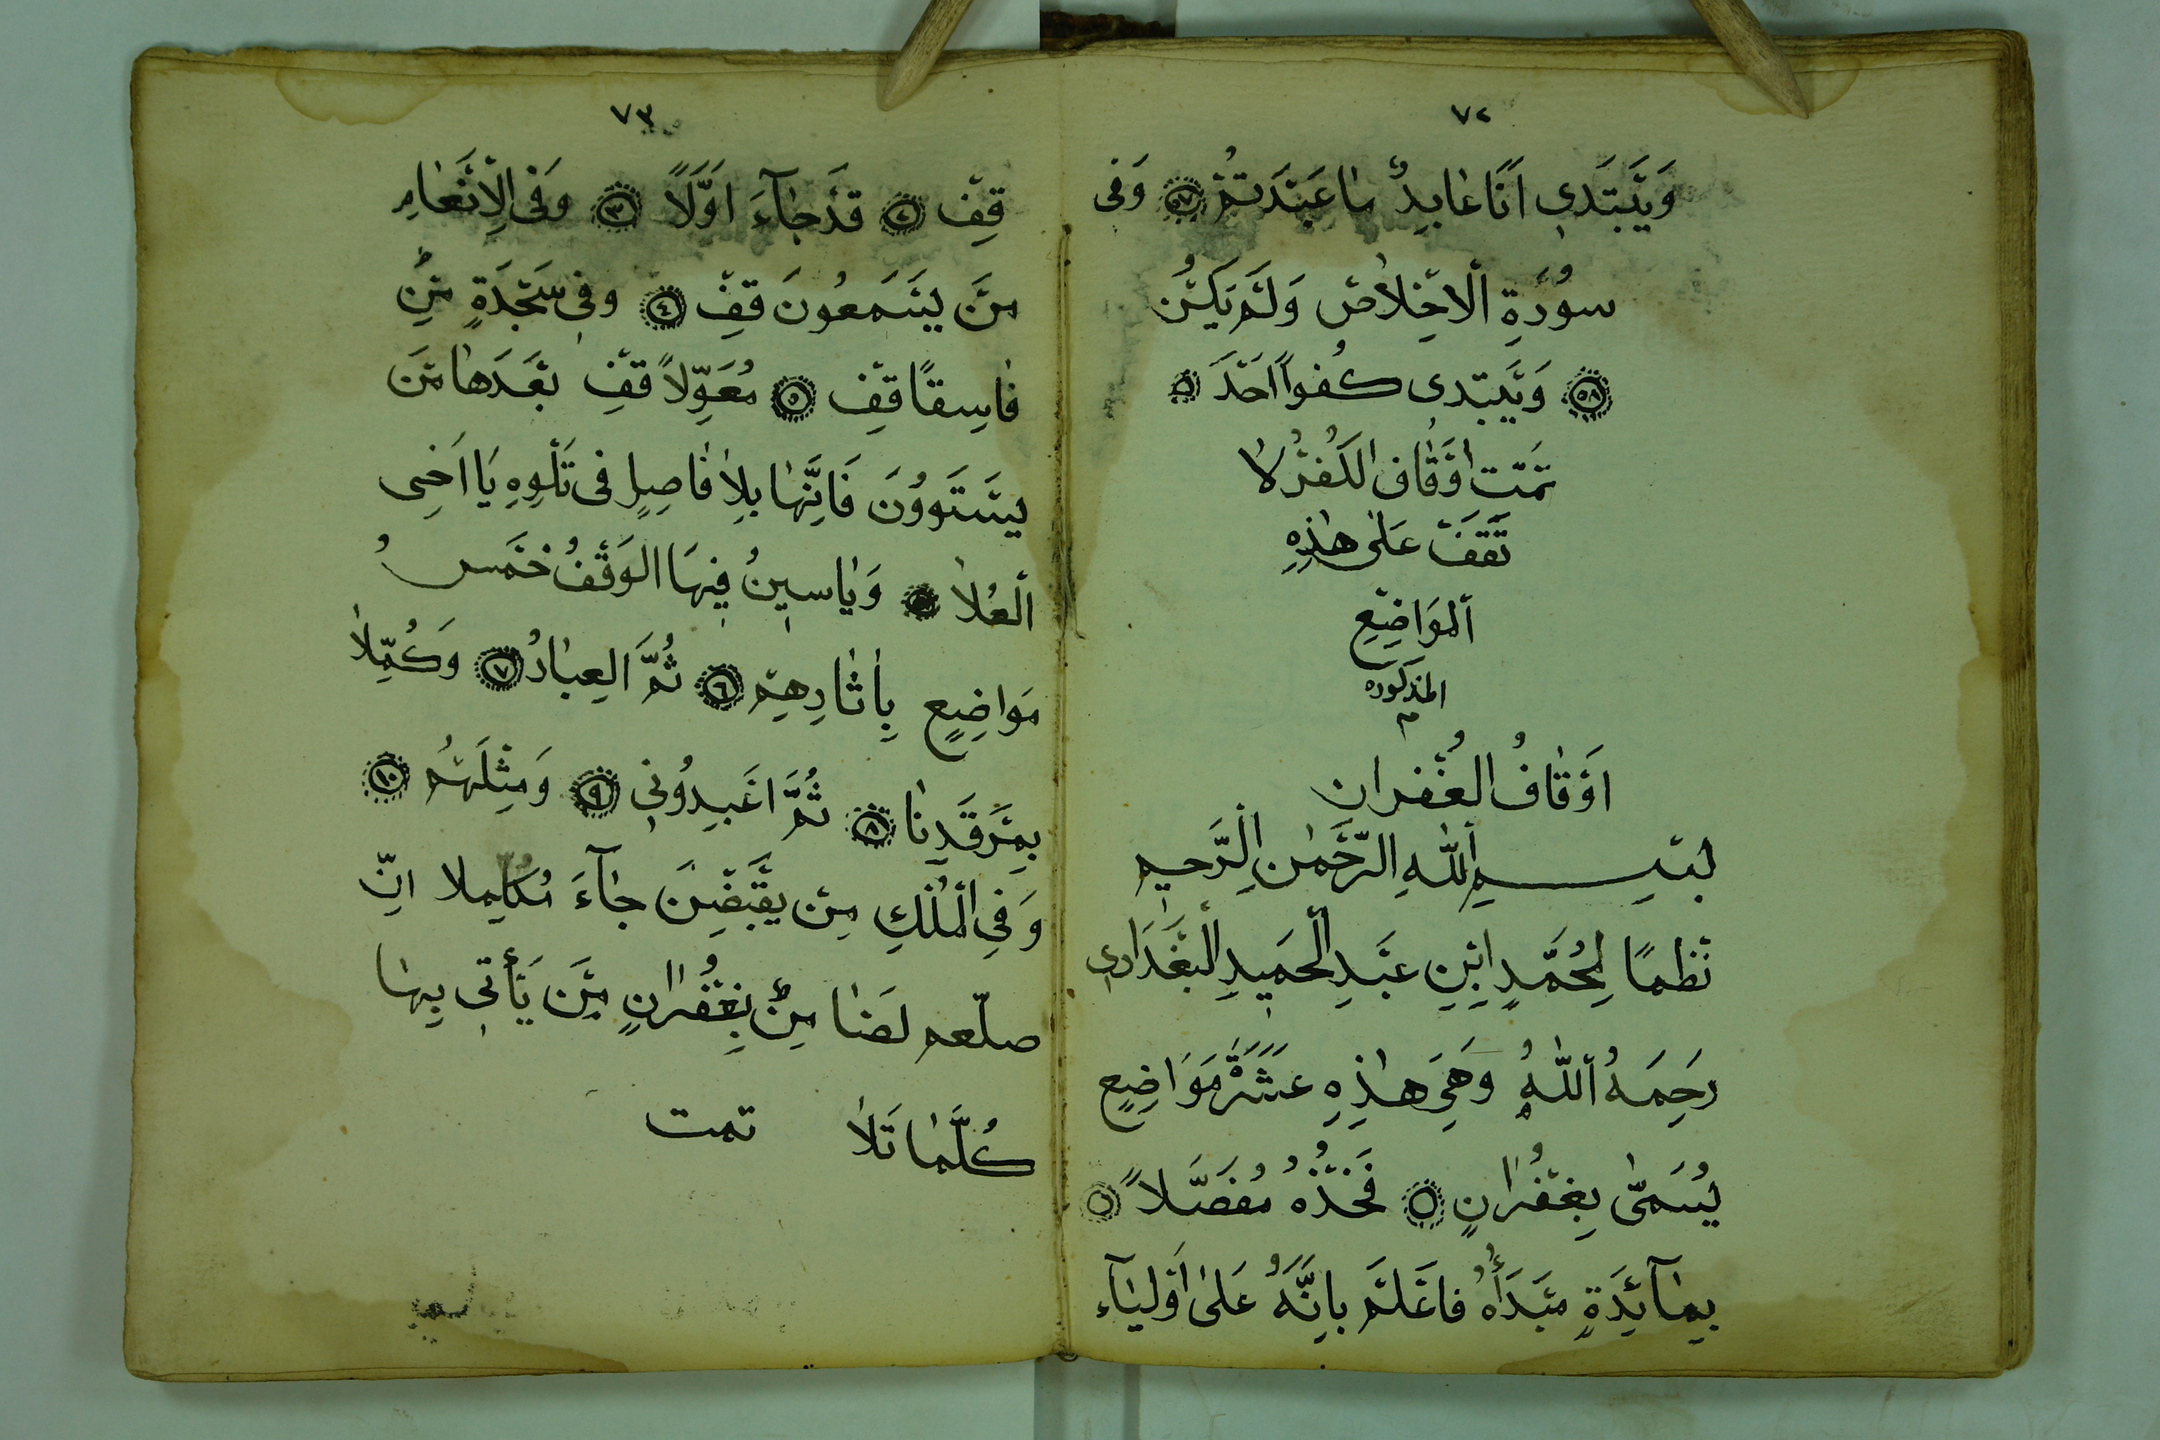 ٧٢
وَيَبْتَدِي اَنَا عٰابِدٌ مٰا عَبَدْتُمْ ٥٧ وَفِى
سُوْرَةِ الْاِخْلَاصْ وَلَمْ يَكُنْ
٥٨ وَيَبْتَدِى كُفُواً اَحَدْ
تمّت اوْقٰاف الكُفْرُ لا
تَقِفْ عَلٰى هٰذِهِ
اَلْمَوَاضِعِ
المذكوره
م
اَوْقٰافُ الغُفْران
بِسْمِ اللّٰهِ الرَّحْمٰنِ الرَّحِيمِ
نَظْمًا لِمُحَمَّدٍ ابْنِ عَبْدِ الْحَمِيدِ الْبَغْدَادِي
رَحِمَهُ اَللّٰهُ وَهِيَ هٰذِهِ عَشَرَةُ مَوَاضِعٍ
يُسَمّٰى بِغُفْرٰانٍ ٥ فَخُذْهُ مُفَصَّلاً ١
بِمٰآئِدَةٍ مَبْدَأُهُ فَاعْلَمْ بِاَنَّهُ عَلٰى اَوْلِيٰآءِ
٧٣
قِفْ ٢ قَدْ جٰآءَ اَوَّلاً ٣ وَفِى الْاَنْعٰامِ
مَنْ يَسْمَعُونَ قِفْ ٤ وَفِى سَجْدَةٍ مَنْ
فٰاسِقًا قِفْ ٥ مُعَوِّلاً قِفْ بَعْدَهٰا مَنْ
يَسْتَوُوْنَ فَاِنَّهٰا بِلٰا فٰاصِلٍ فِى تَلْوِهِ يَا اَخِى
اَلْعُلاٰ وَيٰاسِينُ فِيهَا الوَقْفُ خَمْسُ
مَوَاضِعٍ بِاٰثٰارِهِمْ ٦ ثُمَّ الْعِبٰادُ ٧ وَكُمِّلاٰ
بِمَرْقَدِنٰا ٨ ثُمَّ اعْبِدُونِى ٩ وَمِثْلَهُمْ ١٠
وَفِي الْمُلْكِ مِنْ يَقْبِضْنَ جٰآءَ مُكَمِلا انّ
صلّعم لَضَنٰا مِنْ بِغُفْرٰانٍ مَنْ يَأْتِى بِهٰا
كُلَّمٰا تَلاٰ تمت